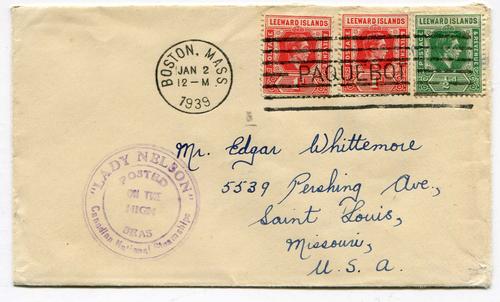 BOSTON, MASS.
JAN 2
12-M
1939
LEEWARD ISLANDS
LEEWARD ISLANDS
LEEWARD ISLANDS
POSTAGE
REVENUE
PAQUEBOT
1D
1D
½D
"LADY NELSON"
POSTED
ON THE
HIGH
SEAS
Canadian National Steamships
Mr. Edgar Whittemore
5539 Pershing Ave.,
Saint Louis,
Missouri,
U. S. A.